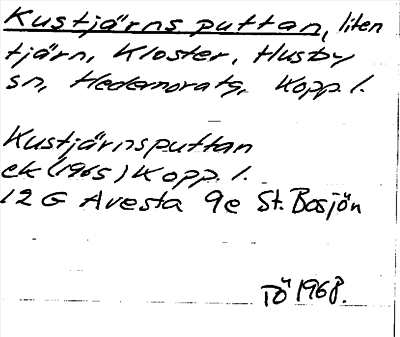 Kustjärnsputtan, liten
tjärn, Kloster, Husby
sn, Hedemoratg, Kopp. l.
Kustjärnsputtan
ek (1965) Kopp. l.
12 G Avesta 9e St. Bosjön
TÖ 1968.